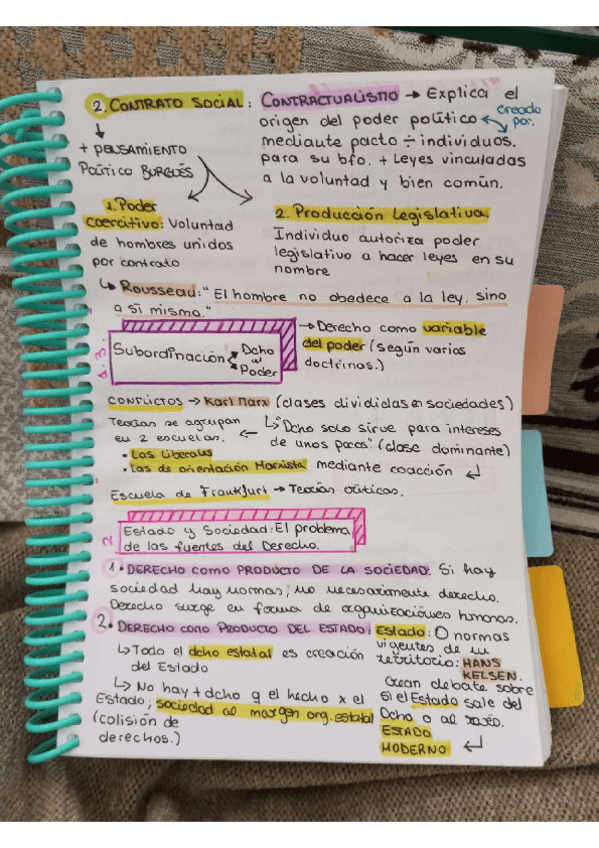 2. CONTRATO SOCIAL: CONTRACTUALISTIO → Explica el
origen del poder político creado por.
mediante pacto ÷ individuos.
para su bfo. + Leyes vinculadas
a la voluntad y bien común.
+ PENSAMIENTO
POLÍTICO BURGUÉS
1. Poder
coercitivo: Voluntad
de hombres unidos
por contrato
2. Producción Legislativa.
Individuo autoriza poder
legislativo a hacer leyes en su
nombre
↳ Rousseau: "El hombre no obedece a la ley, sino
a sí mismo."
1.3.
Subordinación Dcho
al
Poder
→ Derecho como variable
del poder (según varias
doctrinas.)
CONFLICTOS → Karl Marx (clases divididas en sociedades)
Teorías se agrupan
en 2 escuelas. ←
• Las Liberales
• Las de orientación Marxista
↳ "Dcho solo sirve para intereses
de unos pocos" (clase dominante)
mediante coacción ↵
Escuela de Frankfurt → Teorías críticas.
2.
Estado y Sociedad: El problema
de las fuentes del Derecho.
1. DERECHO COMO PRODUCTO DE LA SOCIEDAD: Si hay
sociedad hay normas; no necesariamente derecho.
Derecho surge en forma de organizaciones humanas.
2. DERECHO COMO PRODUCTO DEL ESTADO:
↳ Todo el dcho estatal es creación
del Estado
↳ No hay + dcho q el hecho x el
Estado; sociedad al margen org. estatal
(colisión de
derechos.)
Estado: O normas
vigentes de su
territorio: HANS
KELSEN.
Crean debate sobre
si el Estado sale del
Dcho o al revés.
ESTADO
MODERNO ↵